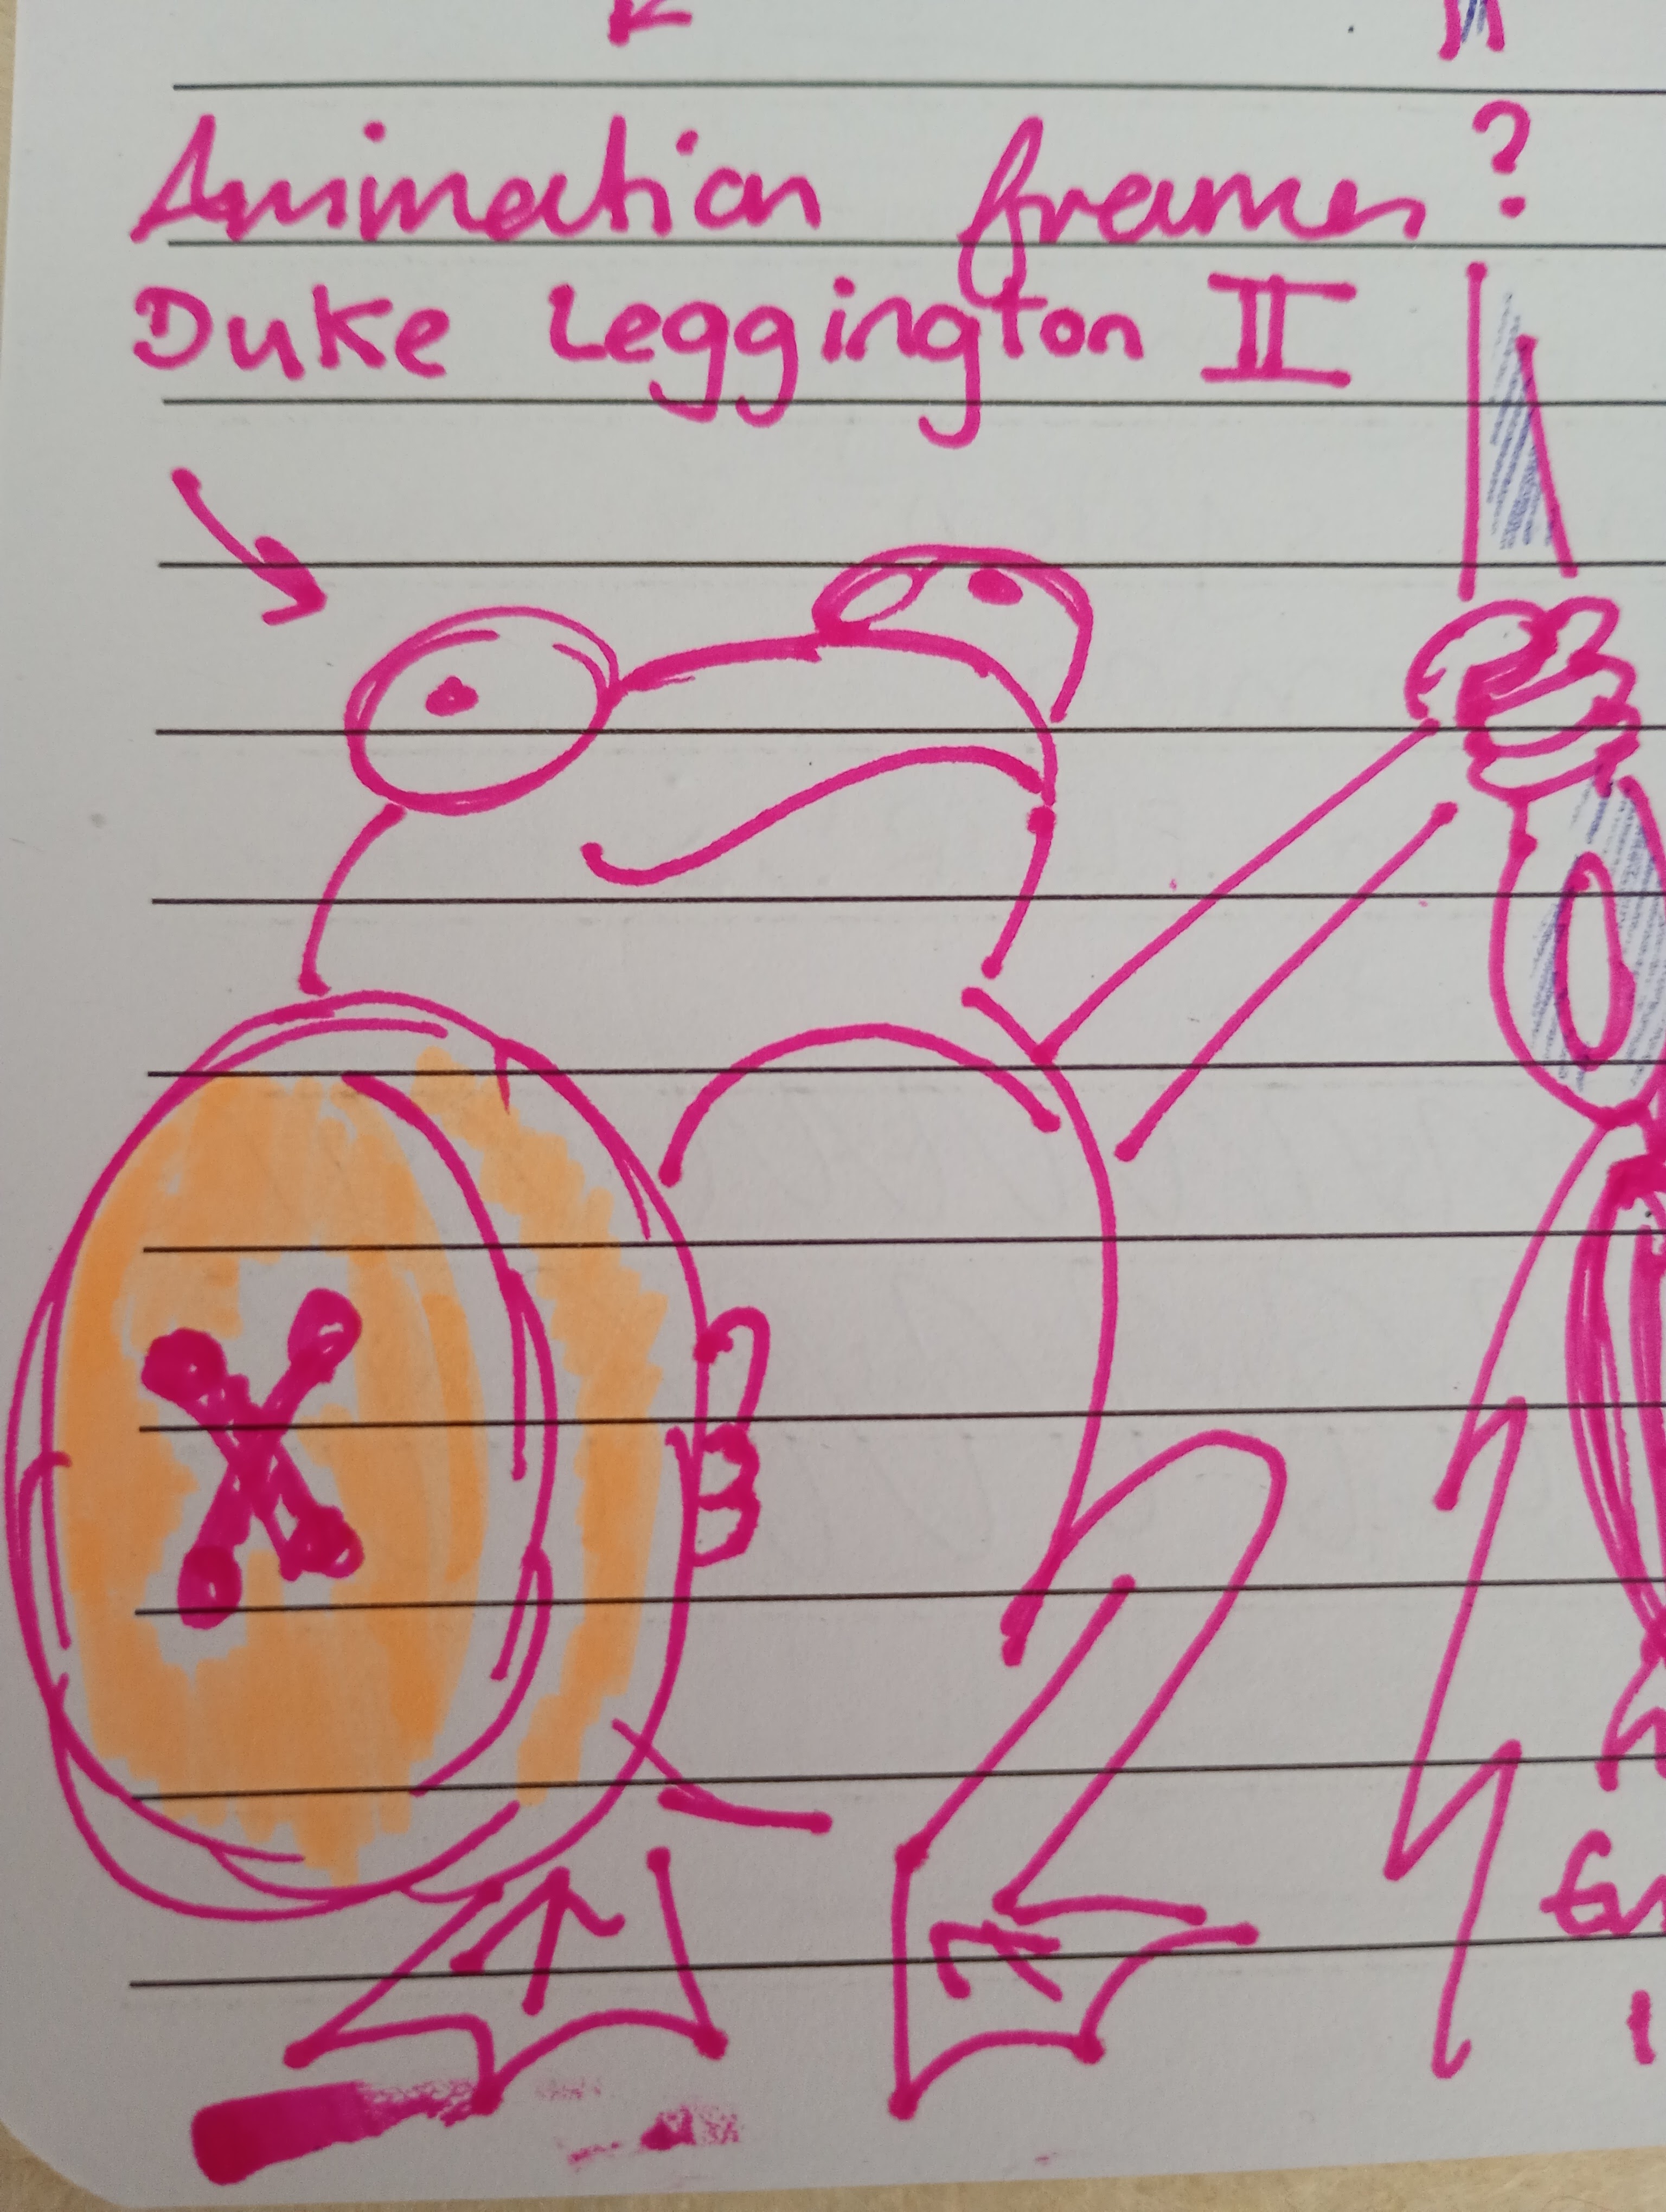 Animation frames?
Duke Leggington II